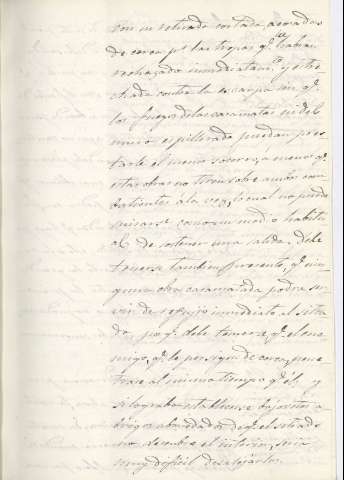 con su retirada cortada acosados
de cerca pr. las tropas qe. le habian
rechazado inmediatamte. y estre
chado contra la escarpa sin qe.
los fuegos de las casamatas ni del
muro espillerado puedan pres
tarle el menor socorro a menos qe.
estas obras no tiren sobre ambos com
batientes á la vez, lo cual no puede
mirarse como un medio habitu
al de sostener una salida. debe
tenerse tambien presente, qe. nin
guna obra casamatada podra ser
vir de refugio inmediato al sitia
do, porqe. debe temerse qe. el ene
migo, qe. le persigue de cerca, pene
trase al mismo tiempo qe. él y
si lograba establecerse bajo estos a
brigos abovedados de qe. el sitiado
no descubre el interior, seria
muy dificil desalojarlos.